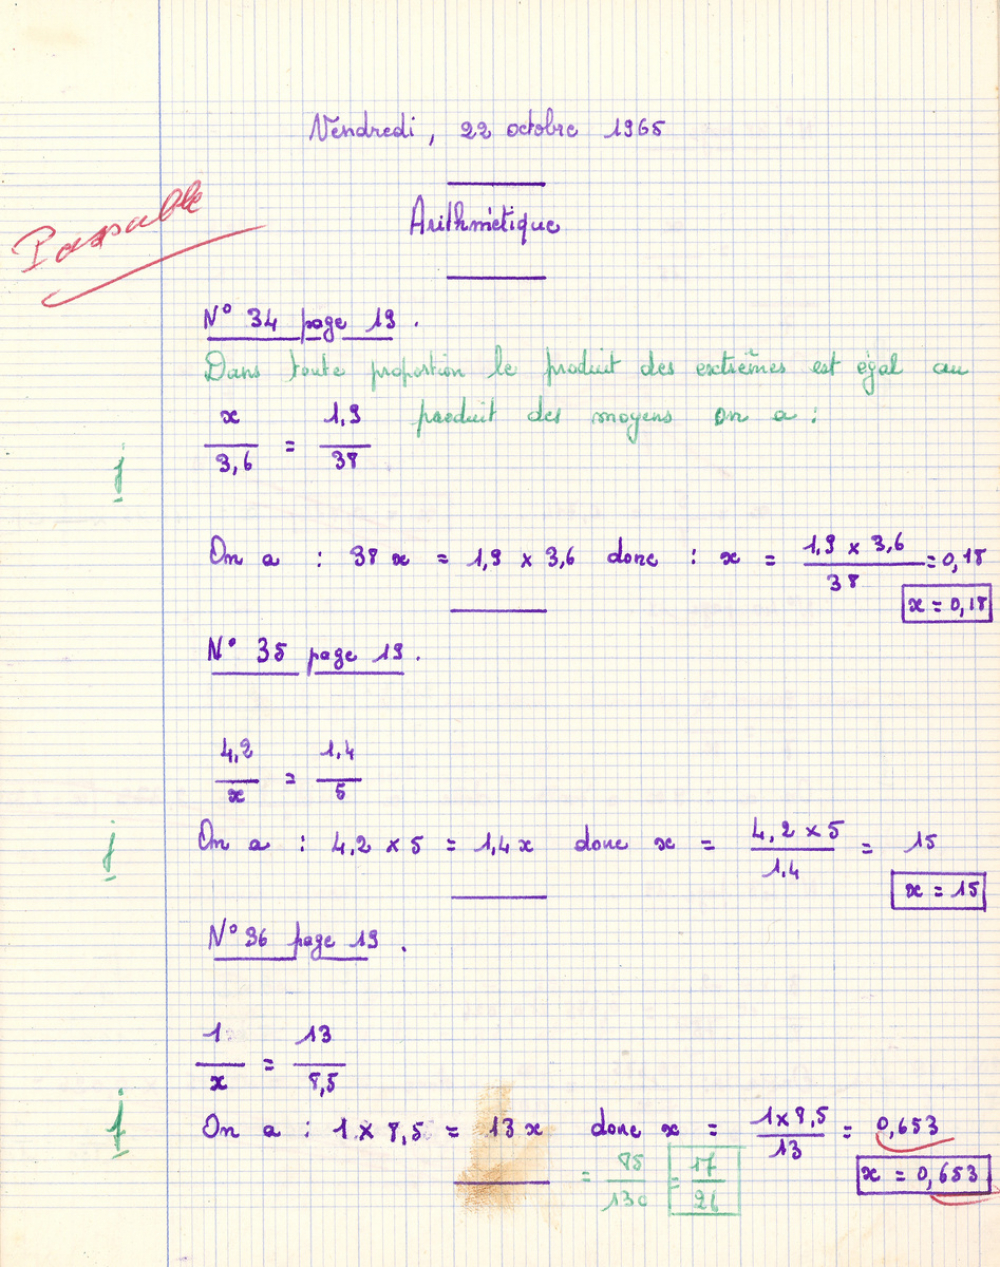 Vendredi, 22 octobre 1965
Passable
Arithmétique
N° 34 page 19.
Dans toute proportion le produit des extrêmes est égal au
produit des moyens on a :
x / 3,6 = 1,9 / 38
j
On a : 38 x = 1,9 x 3,6 donc : x = 1,9 x 3,6 / 38 = 0,18
x = 0,18
N° 35 page 19.
4,2 / x = 1,4 / 5
j
On a : 4,2 x 5 = 1,4 x donc x = 4,2 x 5 / 1,4 = 15
x = 15
N° 36 page 19.
1 / x = 13 / 8,5
j
On a : 1 x 8,5 = 13 x donc x = 1 x 8,5 / 13 = 0,653
= 85 / 130 = 17 / 26
x = 0,653